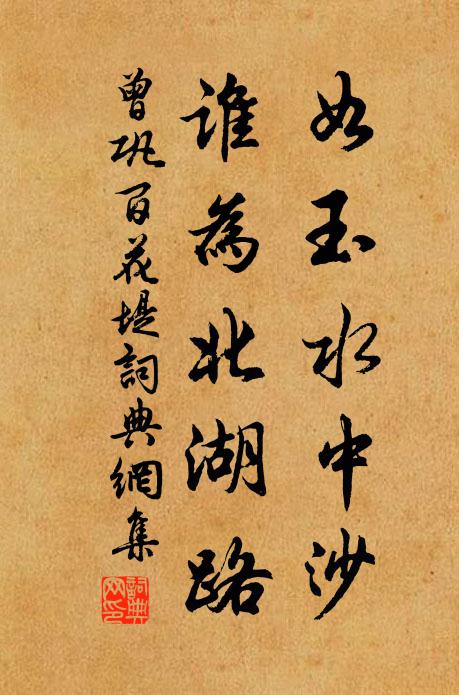 如玉水中沙
誰為北湖路
曾巩百花堤詞典網集
詞典网印